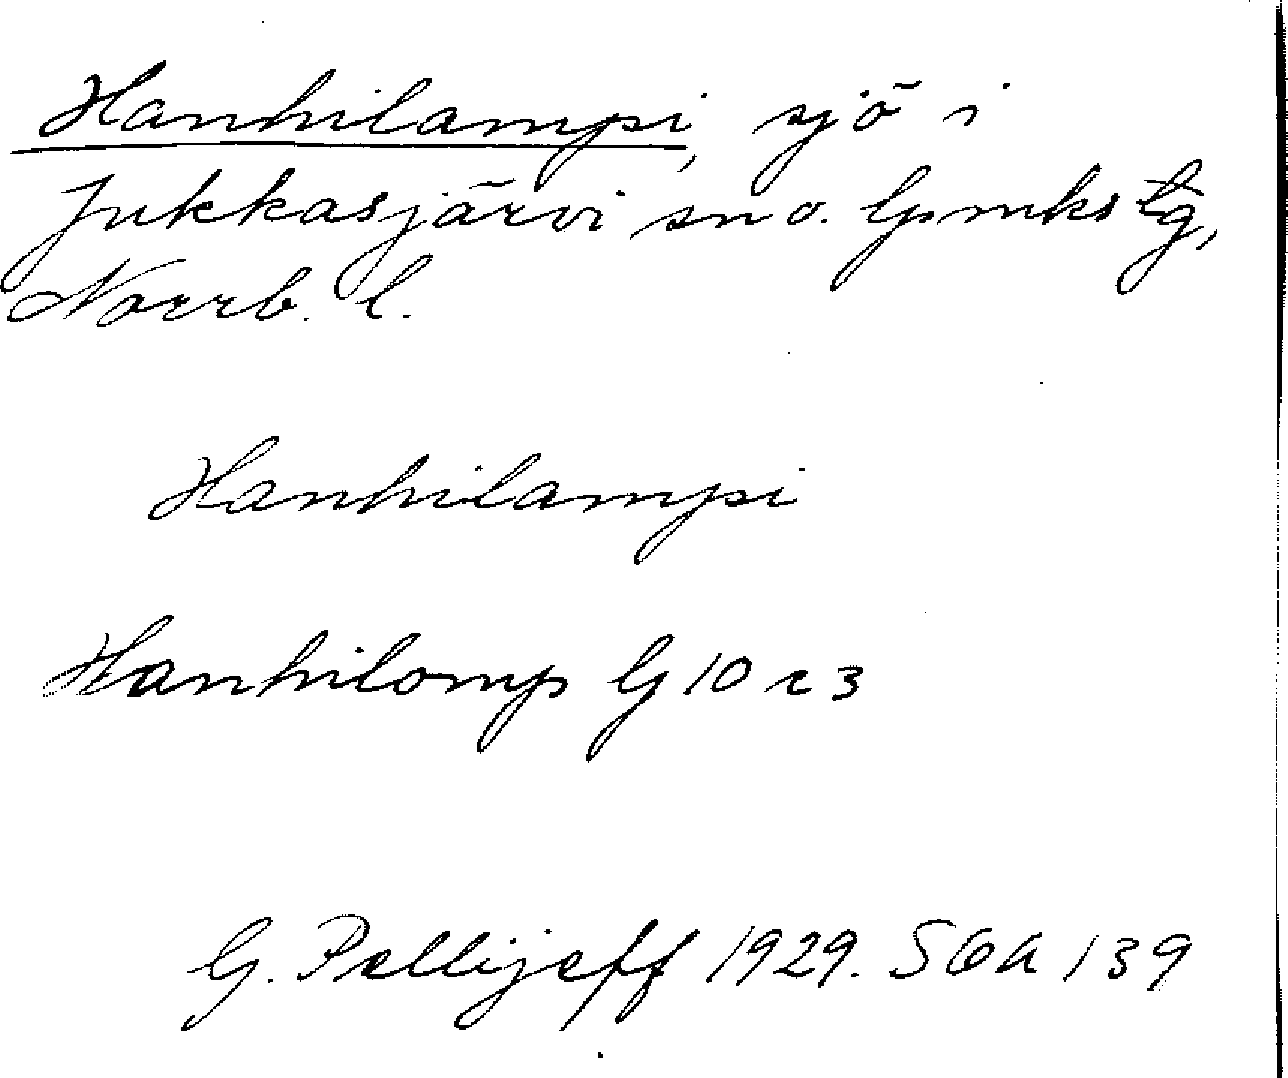 Hanhilampi, sjö i
Jukkasjärvi sn o. Lpmks tg,
Norrb. l.
Hanhilampi
Hanhilomp G 10 r 3
G. Pellijeff 1929. SOA 139